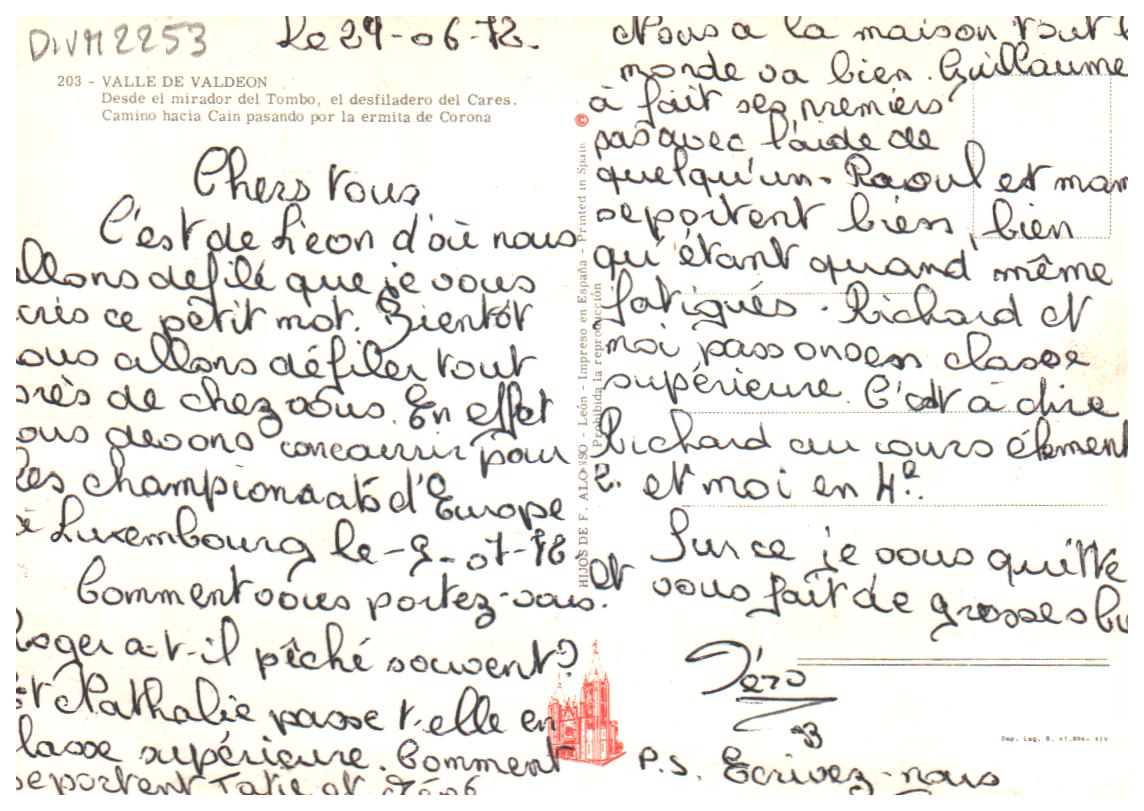 DIVM 2253
Le 29-06-72.
203 - VALLE DE VALDEON
Desde el mirador del Tombo, el desfiladero del Cares.
Camino hacia Cain pasando por la ermita de Corona
Chers tous
C'est de Léon d'où nous
allons defilé que je vous
cris ce petit mot. Bientôt
ous allons défiler tout
près de chez vous. En effet
ous devons concourrir pour
les championnats d'Europe
à Luxembourg le -9-07-72.
Comment vous portez-vous.
Roger a-t-il pêché souvent?
et Nathalie passe t-elle en
lasse supérieure. Comment
se portent Tatie et
HIJOS DE F. ALONSO - León - Impreso en España - Printed in Spain ©
Prohibida la reproducción
Nous a la maison tout l
monde va bien. Guillaume
à fait ses premiers
pas avec l'aide de
quelqu'un. Raoul et mam
se portent bien, bien
qu'étant quand même
fatigués. Richard et
moi passons en classe
supérieure. C'est à dire
Richard au cours élément
2. et moi en 4e.
Sur ce je vous quitte
et vous fait de grosses bi
Géro
P.S. Ecrivez-nous
Dep. Leg. B. 41.894- XIV